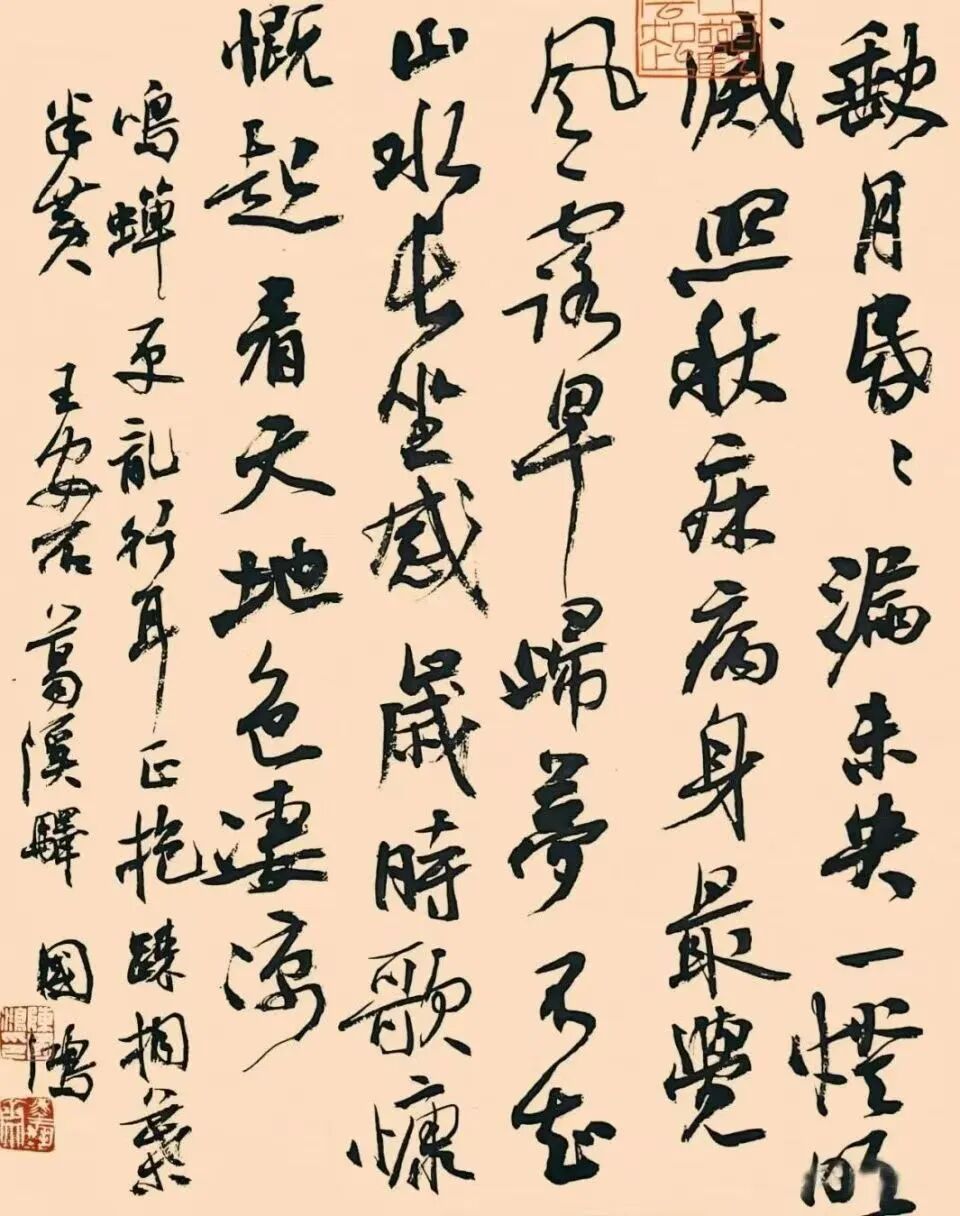 缺月昏〻漏未央一燈明
滅照秋床病身最覺
風露早歸夢不知
山水長坐感歲時歌慷
慨起看天地色淒涼
鳴蟬更亂行耳正抱疎桐葉
半黃 王安石葛溪驛 國鴻